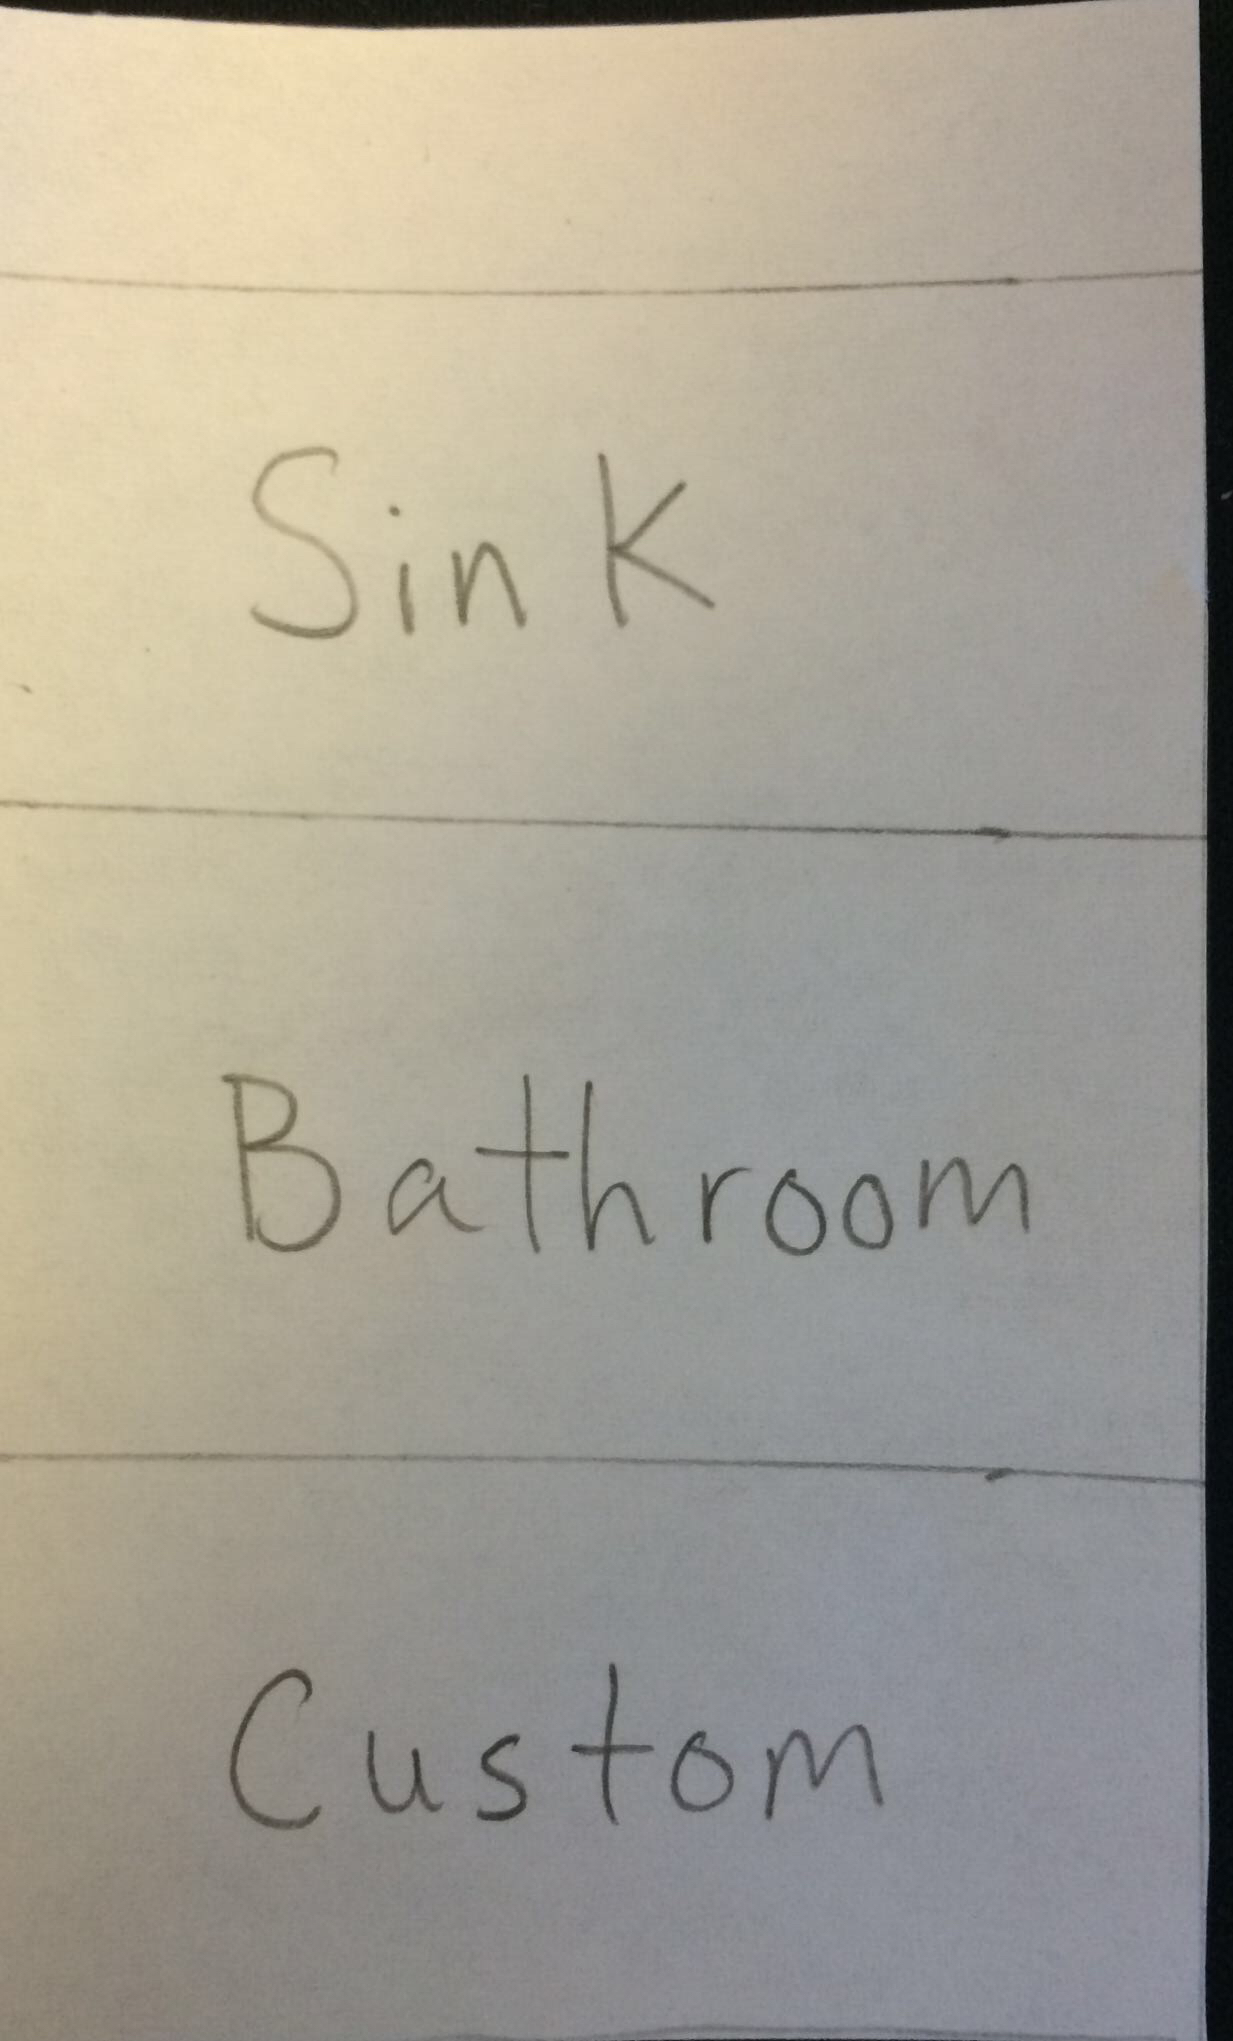 Sink
Bathroom
Custom